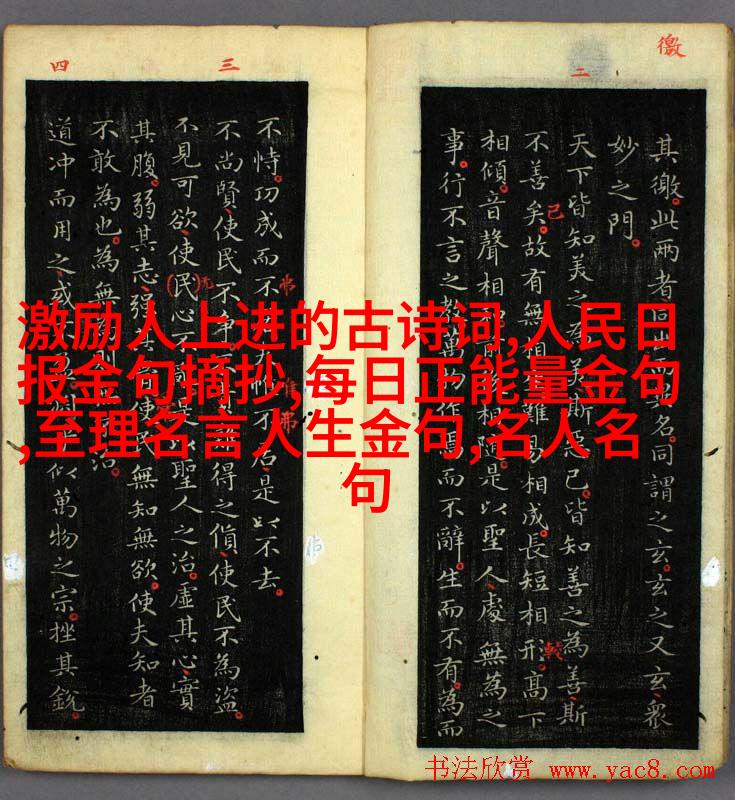 徼
二
其徼。此兩者同名。同謂之玄。玄之又玄。衆
妙之門。
天下皆知美之美斯惡已。皆知善之為善斯
不善矣。故有無相難易相成。長短相形。高下
相傾。音聲相相隨。是以聖人處無為之
事。行不言之教萬作焉而不辭。生而不有。為而
已
三
四
不恃。功成而不不居是以不去。
不尚賢。使民不爭得之貨。使民不為盜。
不見可欲。使民心是以聖人之治。虛其心。實
其腹。弱其志。強其使民無知無欲。使夫知者
不敢為也。為無則治。
道冲而用之。或似萬物之宗。挫其銳。
无
弗
惟
弗
激励人上进的古诗词,人民日
报金句摘抄,每日正能量金句
,至理名言人生金句,名人名
句
书法欣赏 www.yac8.com